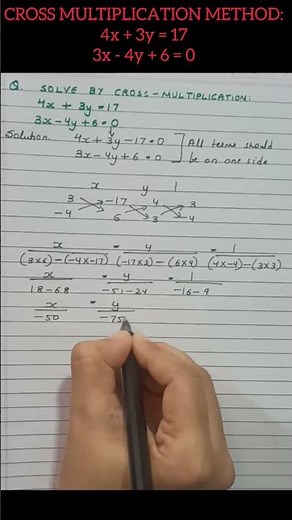 CROSS MULTIPLICATION METHOD:
4x + 3y = 17
3x - 4y + 6 = 0
Q. SOLVE BY CROSS-MULTIPLICATION:
4x + 3y = 17
3x - 4y + 6 = 0
Solution. 4x + 3y - 17 = 0 ] All terms should
3x - 4y + 6 = 0 ] be on one side
x y 1
3 -17 4 3
-4 6 3 -4
x/(3x6)-(-4x-17) = y/(-17x3)-(6x4) = 1/(4x-4)-(3x3)
x/18-68 = y/-51-24 = 1/-16-9
x/-50 = y/-75